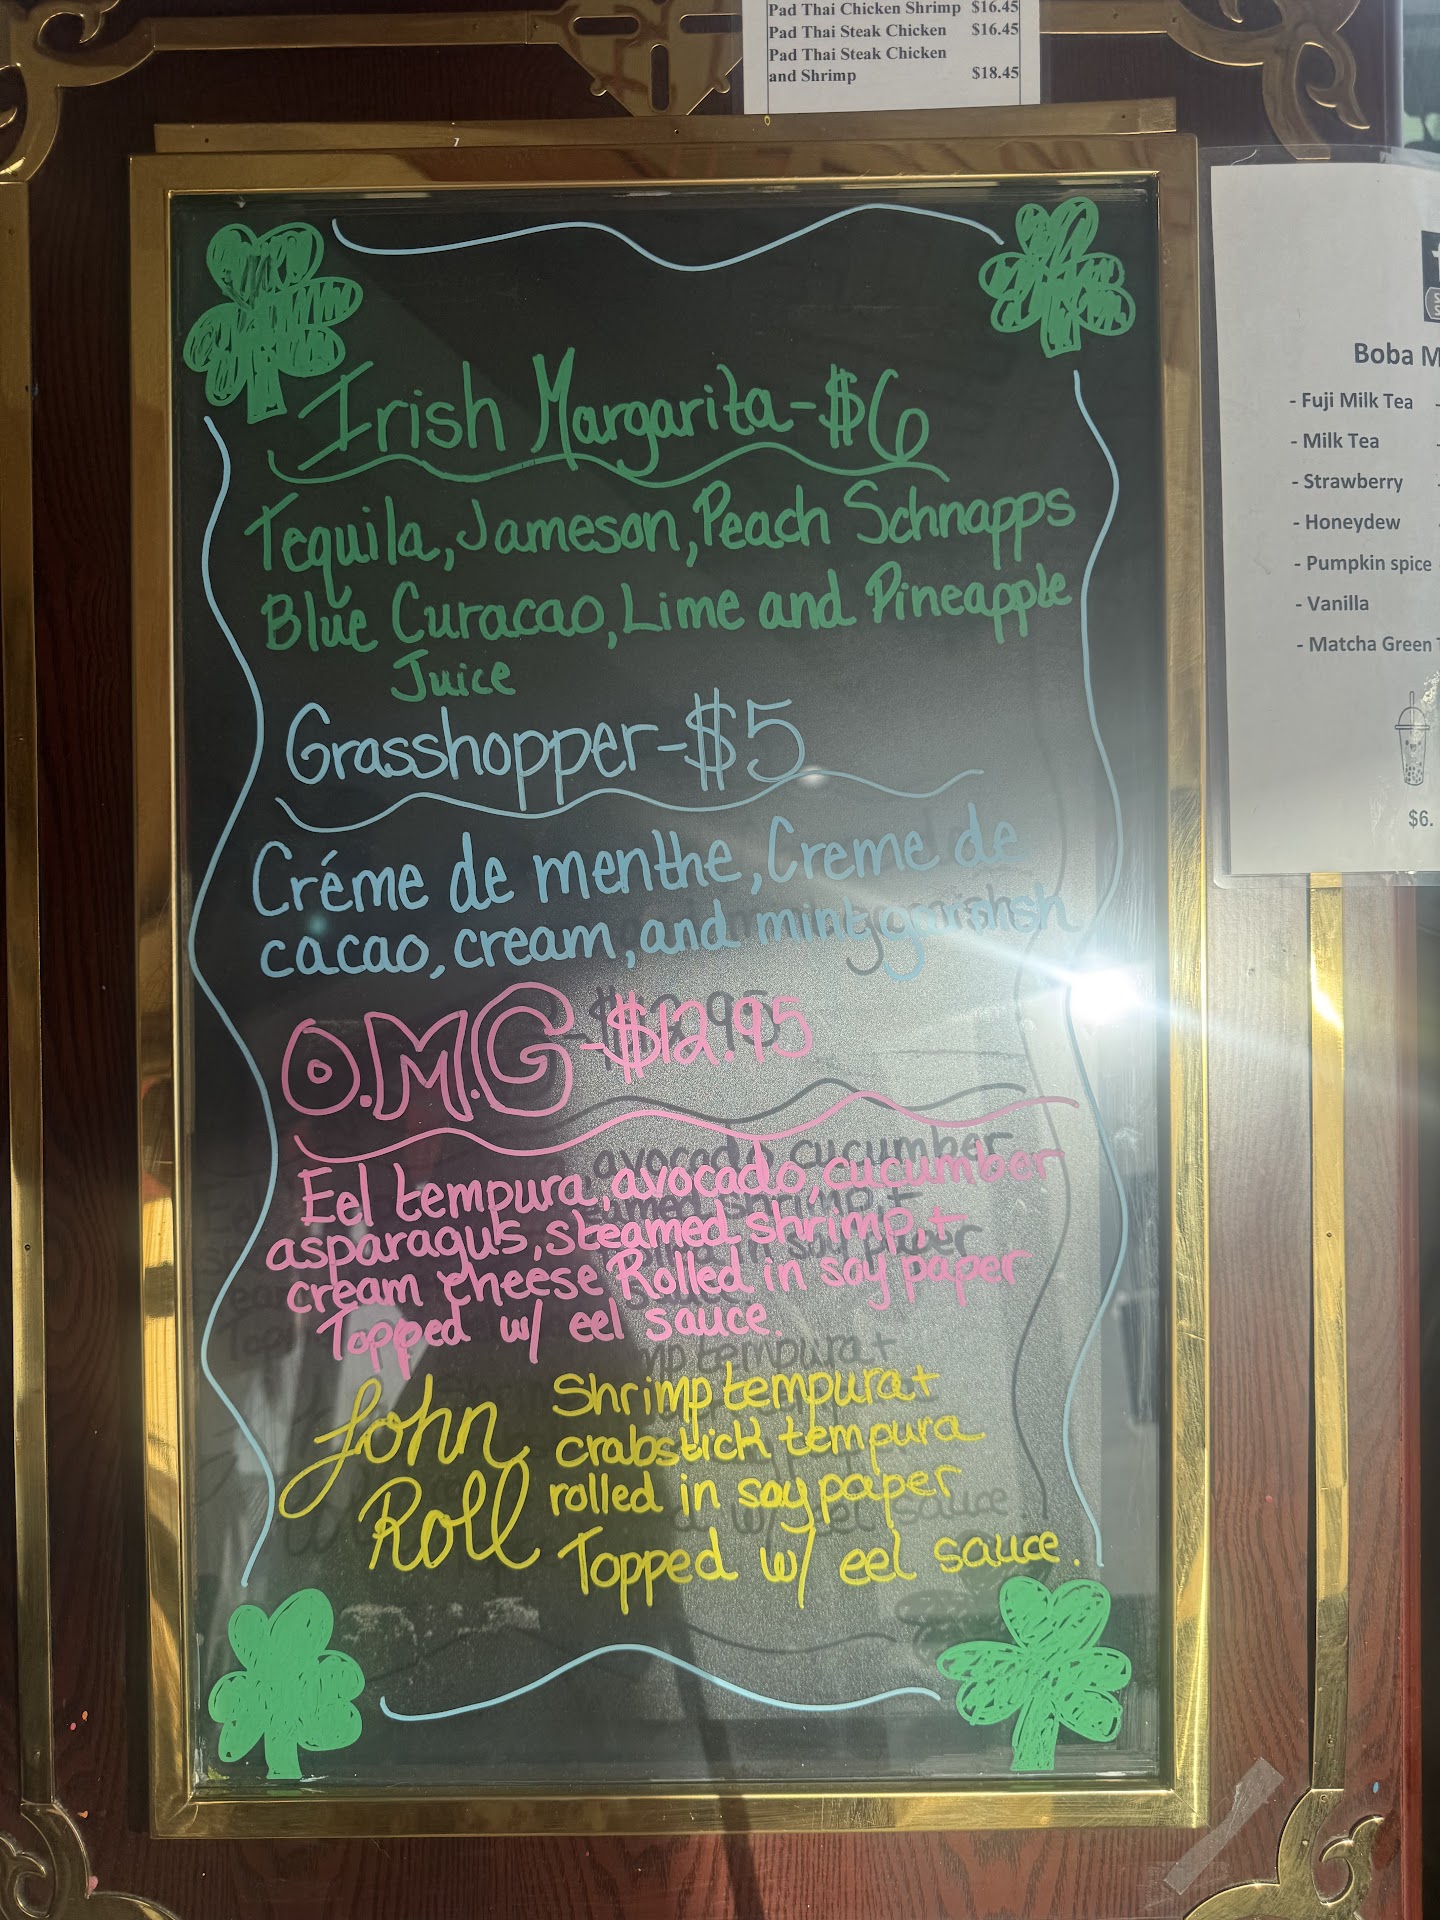 Pad Thai Chicken Shrimp $16.45
Pad Thai Steak Chicken $16.45
Pad Thai Steak Chicken
and Shrimp $18.45
Irish Margarita-$6
Tequila, Jameson, Peach Schnapps
Blue Curacao, Lime and Pineapple
Juice
Grasshopper-$5
Créme de menthe, Creme de
cacao, cream, and mint garnish
O.M.G-$12.95
Eel tempura, avocado, cucumber
asparagus, steamed shrimp, +
cream cheese Rolled in soy paper
Topped w/ eel sauce.
John
Roll
Shrimp tempura +
crabstick tempura
rolled in soy paper
Topped w/ eel sauce.
Boba
- Fuji Milk Tea
- Milk Tea
- Strawberry
- Honeydew
- Pumpkin spice
- Vanilla
- Matcha Green
$6.